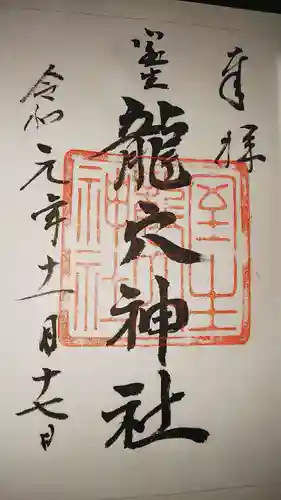 奉拝
室生
龍穴神社
令和元年十一月十七日